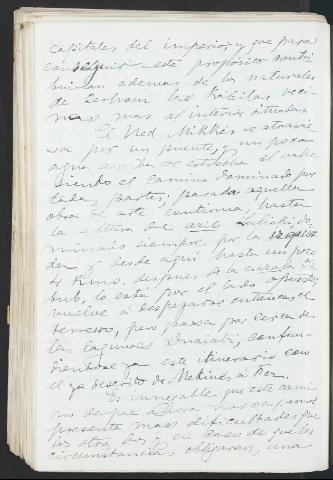 capitales del imperio, y que para
conseguir este propósito contri
buirian además de los naturales
de Zerhom las Kábilas veci
nas mas al interior situadas
El Ued Mikkés se atravie
sa por un puente, y un poco
agua arriba se estrecha el valle
siendo el camino dominado por
todas partes; pasada aquella
obra de arte continua, hasta
la altura del
minado siempre por la izquier
da y desde aquí hasta un poco
4 Kms. despues de la
bub, lo está por el lado opuesto;
vuelve á despejarse entonces el
terreno, pero pasa por cerca de
las lagunas Duaiat, confun-
diéndose ya este itinerario con
el ya descrito de Mekinés á Fez.
Es innegable que este cami
no de que ahora nos ocupamos
presenta mas dificultades que
los otros dos y en caso de que las
circunstancias obligaran, una